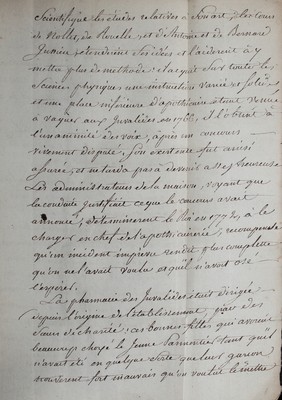 Scientifique les études relatives à son art, les cours
de Nollet, de Rouelle, et de Antoine et de Bernard
Jussieu étendirent ses idées et l'aidèrent à y
mettre plus de méthode, il acquit sur toutes les
Sciences physiques une instruction variée et solide,
et une place inférieure d'apothicaire étant venue
à vaquer aux Invalides en 1766, il l'obtint à
l'unanimité des voix, après un concours
vivement disputé, Son existence fut ainsi
assurée, et ne tarda pas à devenir assez heureuse.
Les administrateurs de la maison, voyant que
la conduite justifiait ce que le concours avait
annoncé, déterminèrent le Roi en 1772, à le
charger en chef de l'apothicairerie, récompense
qu'un incident imprévu rendit plus complette
qu'on ne l'avait voulu et qu'il n'avait osé
l'espérer.
La pharmacie des Invalides était dirigée
depuis l'origine de l'établissement, par des
Sœurs de charité; ces bonnes filles qui avaient
beaucoup choyé le Jeune Parmentier tant qu'il
n'avait été en quelque sorte que leur garçon
trouvèrent fort mauvais qu'on voulut le mettre